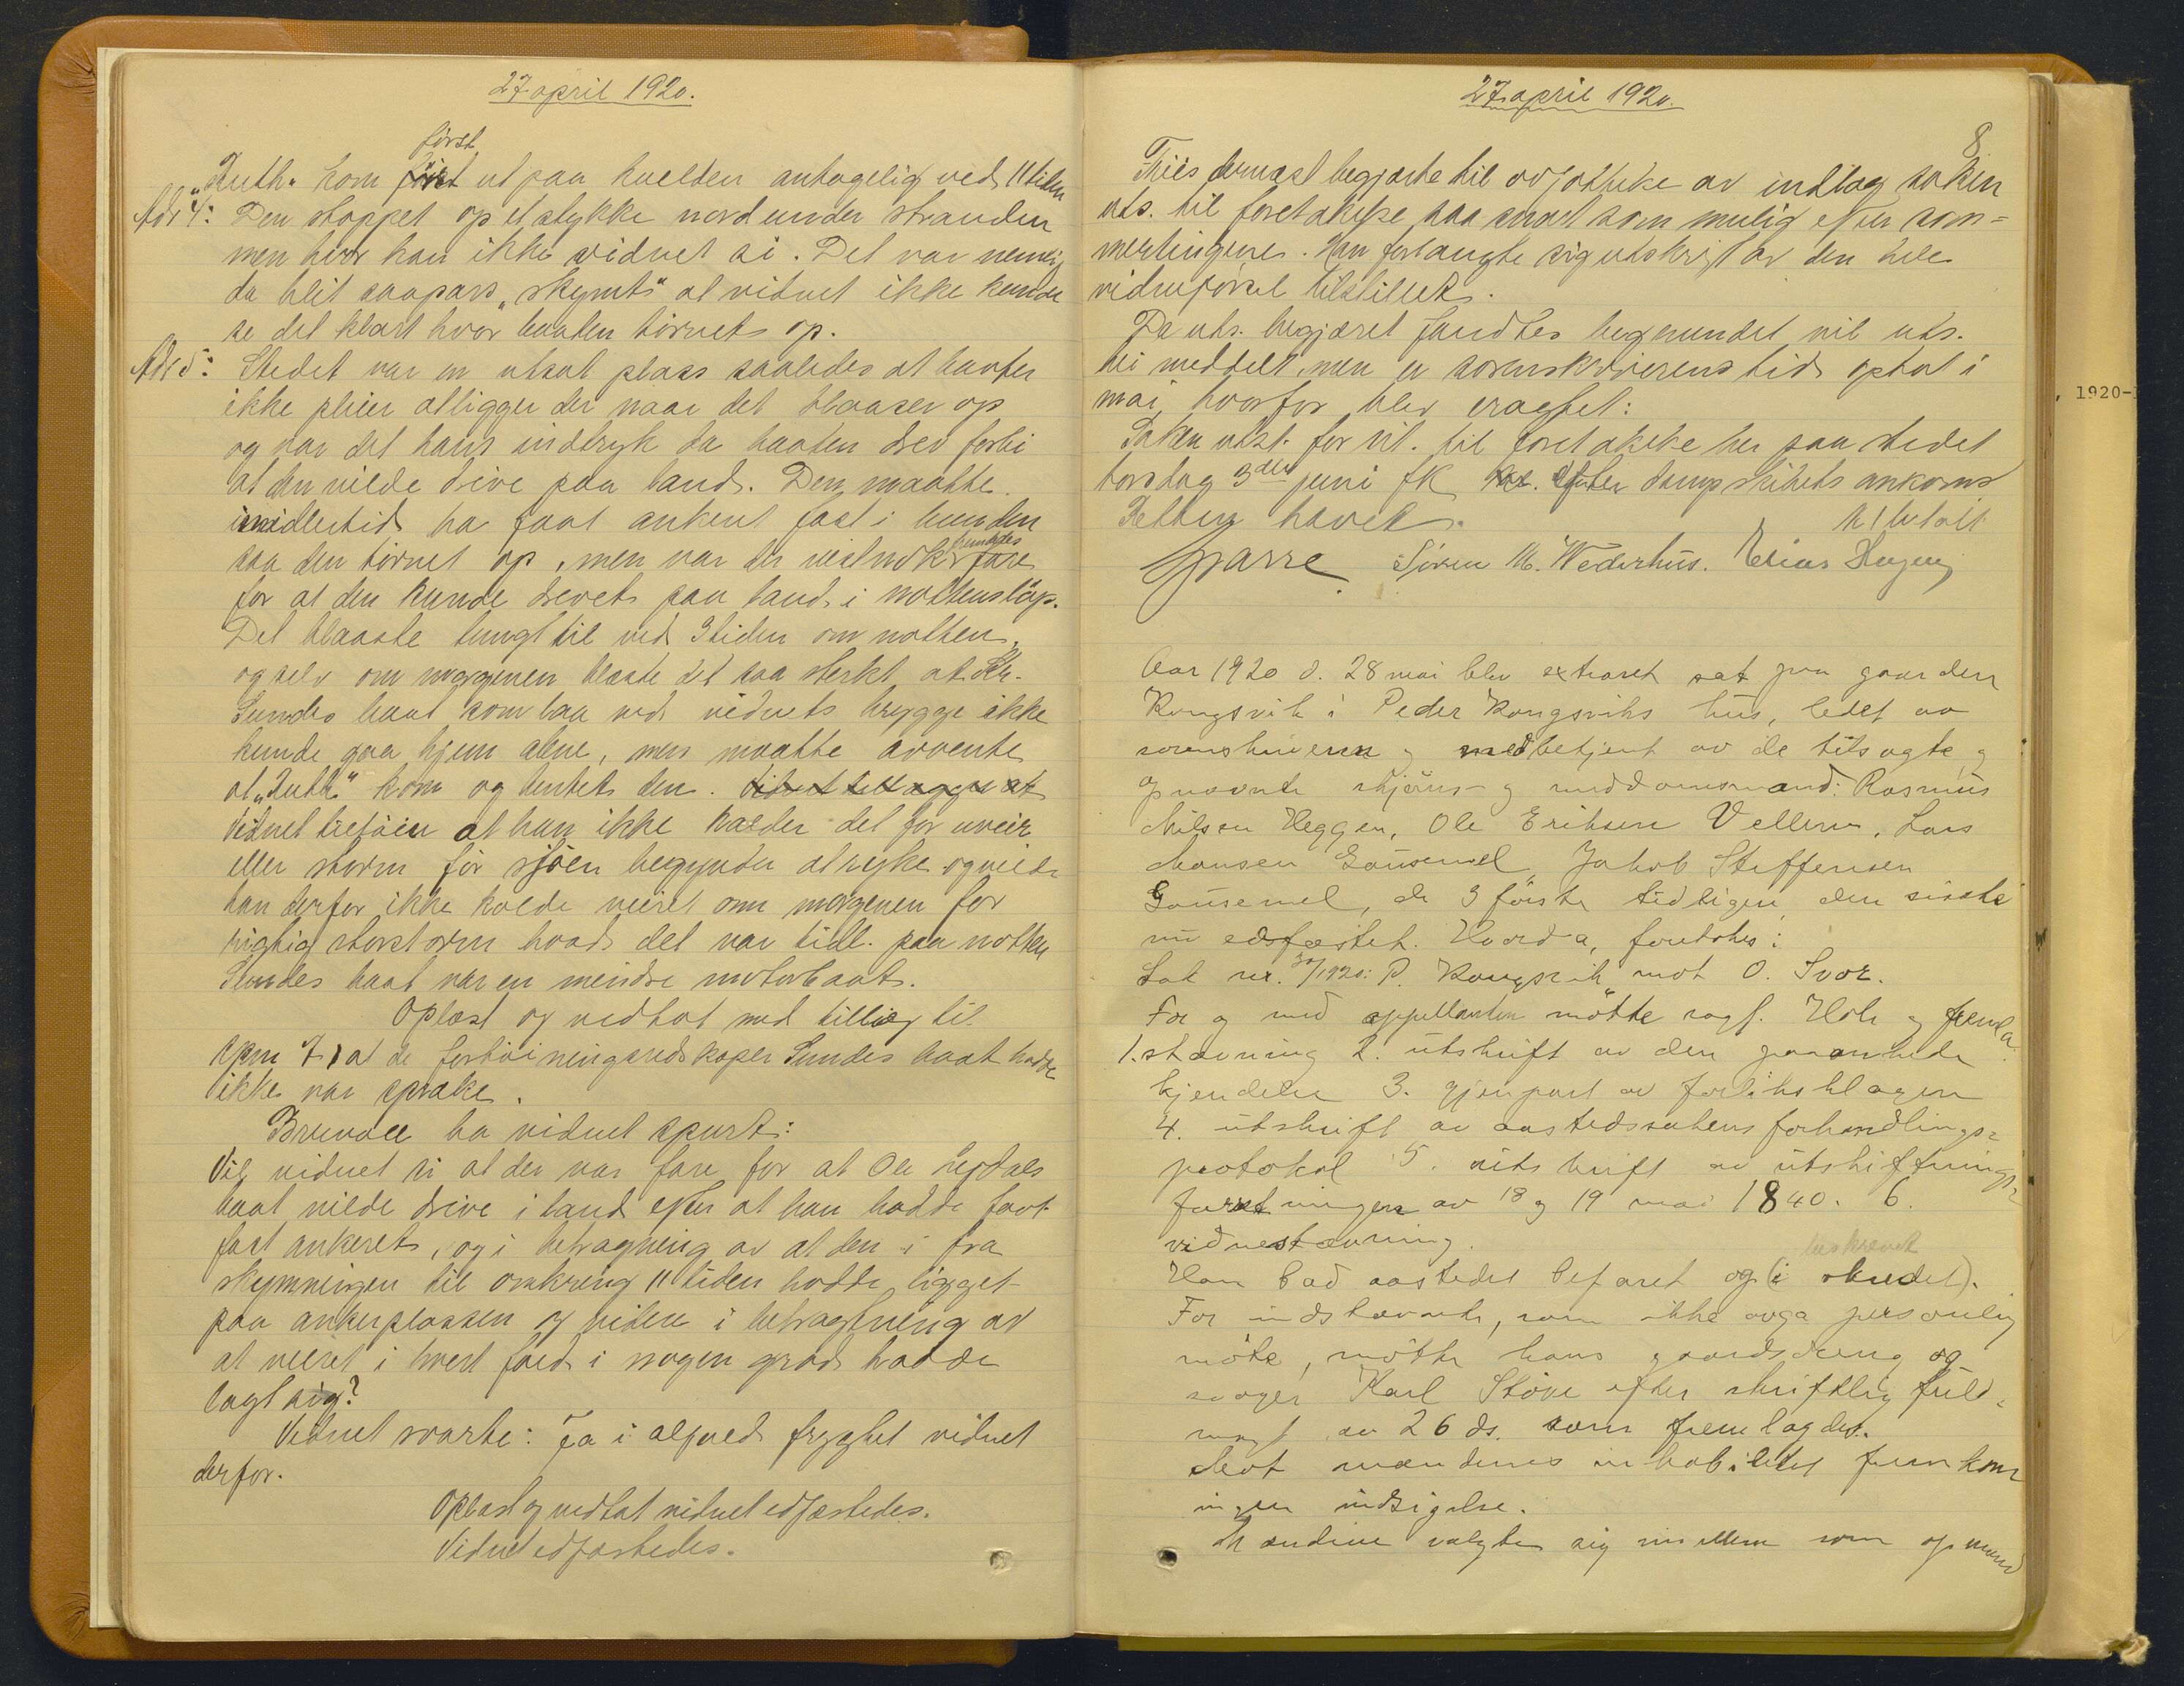 27 april 1920.
først
"Ruth" kom først ut paa kvelden antagelig ved 11 tiden
Ad sp 4: Den stoppet op et stykke nord under stranden
men hvor kan ikke vidnet si. Det var nemlig
da blit saapass "skymt" at vidnet ikke kunde
se det klart hvor baaten tørnet op.
Ad sp 5: Stedet var en utsat plass saaledes at baater
ikke pleier at ligge der naar det blaaser op
og var det hans indtryk da baaten drev forbi
at den vilde drive paa land. Den maatte
imidlertid ha faat ankeret fast i bunden
saa den tørnet op, men var der vistnok fremdeles fare
for at den kunde drevet paa land i nattens løp.
Det blaaste tungt til ved 3 tiden om natten,
og selv om morgenen blaaste det saa sterkt at
Sundes baat som laa ved vidnets brygge ikke
kunde gaa hjem alene, men maatte avvente
at "Ruth" kom og hentet den.
Vidnet tilføier at han ikke kalder det for uveir
eller storm før sjøen begynder at ryke og vilde
han derfor ikke kalde veiret om morgenen for
rigtig storstorm hvad det var tidl. paa natten
Sundes baat var en mindre motorbaat.
Oplæst og vedtat med tillæg til
spm 7) at de fortøiningsredskaper Sundes baat hadde
ikke var spræke.
Brunvoll ba vidnet spurt:
Vil vidnet si at der var fare for at Ole Lefdals
baat vilde drive i land efter at han hadde faat
fast ankeret, og i betragning av at den i fra
skymningen til omkring 11 tiden hadde ligget
paa ankerplassen og videre i betragtning av
at veiret i hvert fald i nogen grad hadde
lagt sig?
Vidnet svarte: Ja i alfald frygtet vidnet
derfor.
Oplæst og vedtat vidnet edfæstedes.
Vidnet edfæstedes.
27 april 1920.
8
Friis dernæst begjærte til avfattelse av indlæg saken
uts. til foretakelse saa snart som mulig efter som=
mertingene. Han forlangte sig utskrift av den hele
vidneførsel tilstillet.
Da uts. begjæret fandtes begrundet vil uts.
bli meddelt, men er sorenskriverens tid optat i
mai, hvorfor blev eragtet:
Saken utst. for vit. til foretakelse her paa stedet
torsdag 3die juni fk efter dampskibets ankomst
Retten hævet.
Sparre. Søren M. Wederhus. Elias Hagen
Aar 1920 d. 28 mai blev extraret sat paa gaarden
Kongsvik i Peder Kongsviks hus, ledet av
sorenskriveren og medbetjent av de tilsagte og
opnævnte skjøns- og meddomsmænd: Rasmus
Nilsen Heggen, Ole Eriksen Vellene, Lars
Monsen Gausemel, Jakob Steffensen
Gausemel, de 3 første tidligere, den sidste
nu edsfæstet. Hvorda, foretokes:
Sak nr. 30/1920: P. Kongsvik mot O. Svor.
For og med appellanten møtte sagf. Hole og fremla
1. stævning 2. utskrift av den paaankede
kjendelse 3. gjenpart av forliksklagen
4. utskrift av aastedssakens forhandlings=
protokol 5. utskrift av utskiftnings=
forretningen av 18 og 19 mai 1840. 6.
vidnestævning.
beskrevet
Han bad aastedet befaret og (i stedet).
For indstævnte, som ikke avga personlig
møte, møtte hans gaardsdreng og
svoger Karl Støve efter skriftlig fuld=
magt av 26 ds. som fremlagdes.
Mot mændenes inhabilitet fremkom
ingen indsigelse.
Mændene valgte sig imellem som opmand